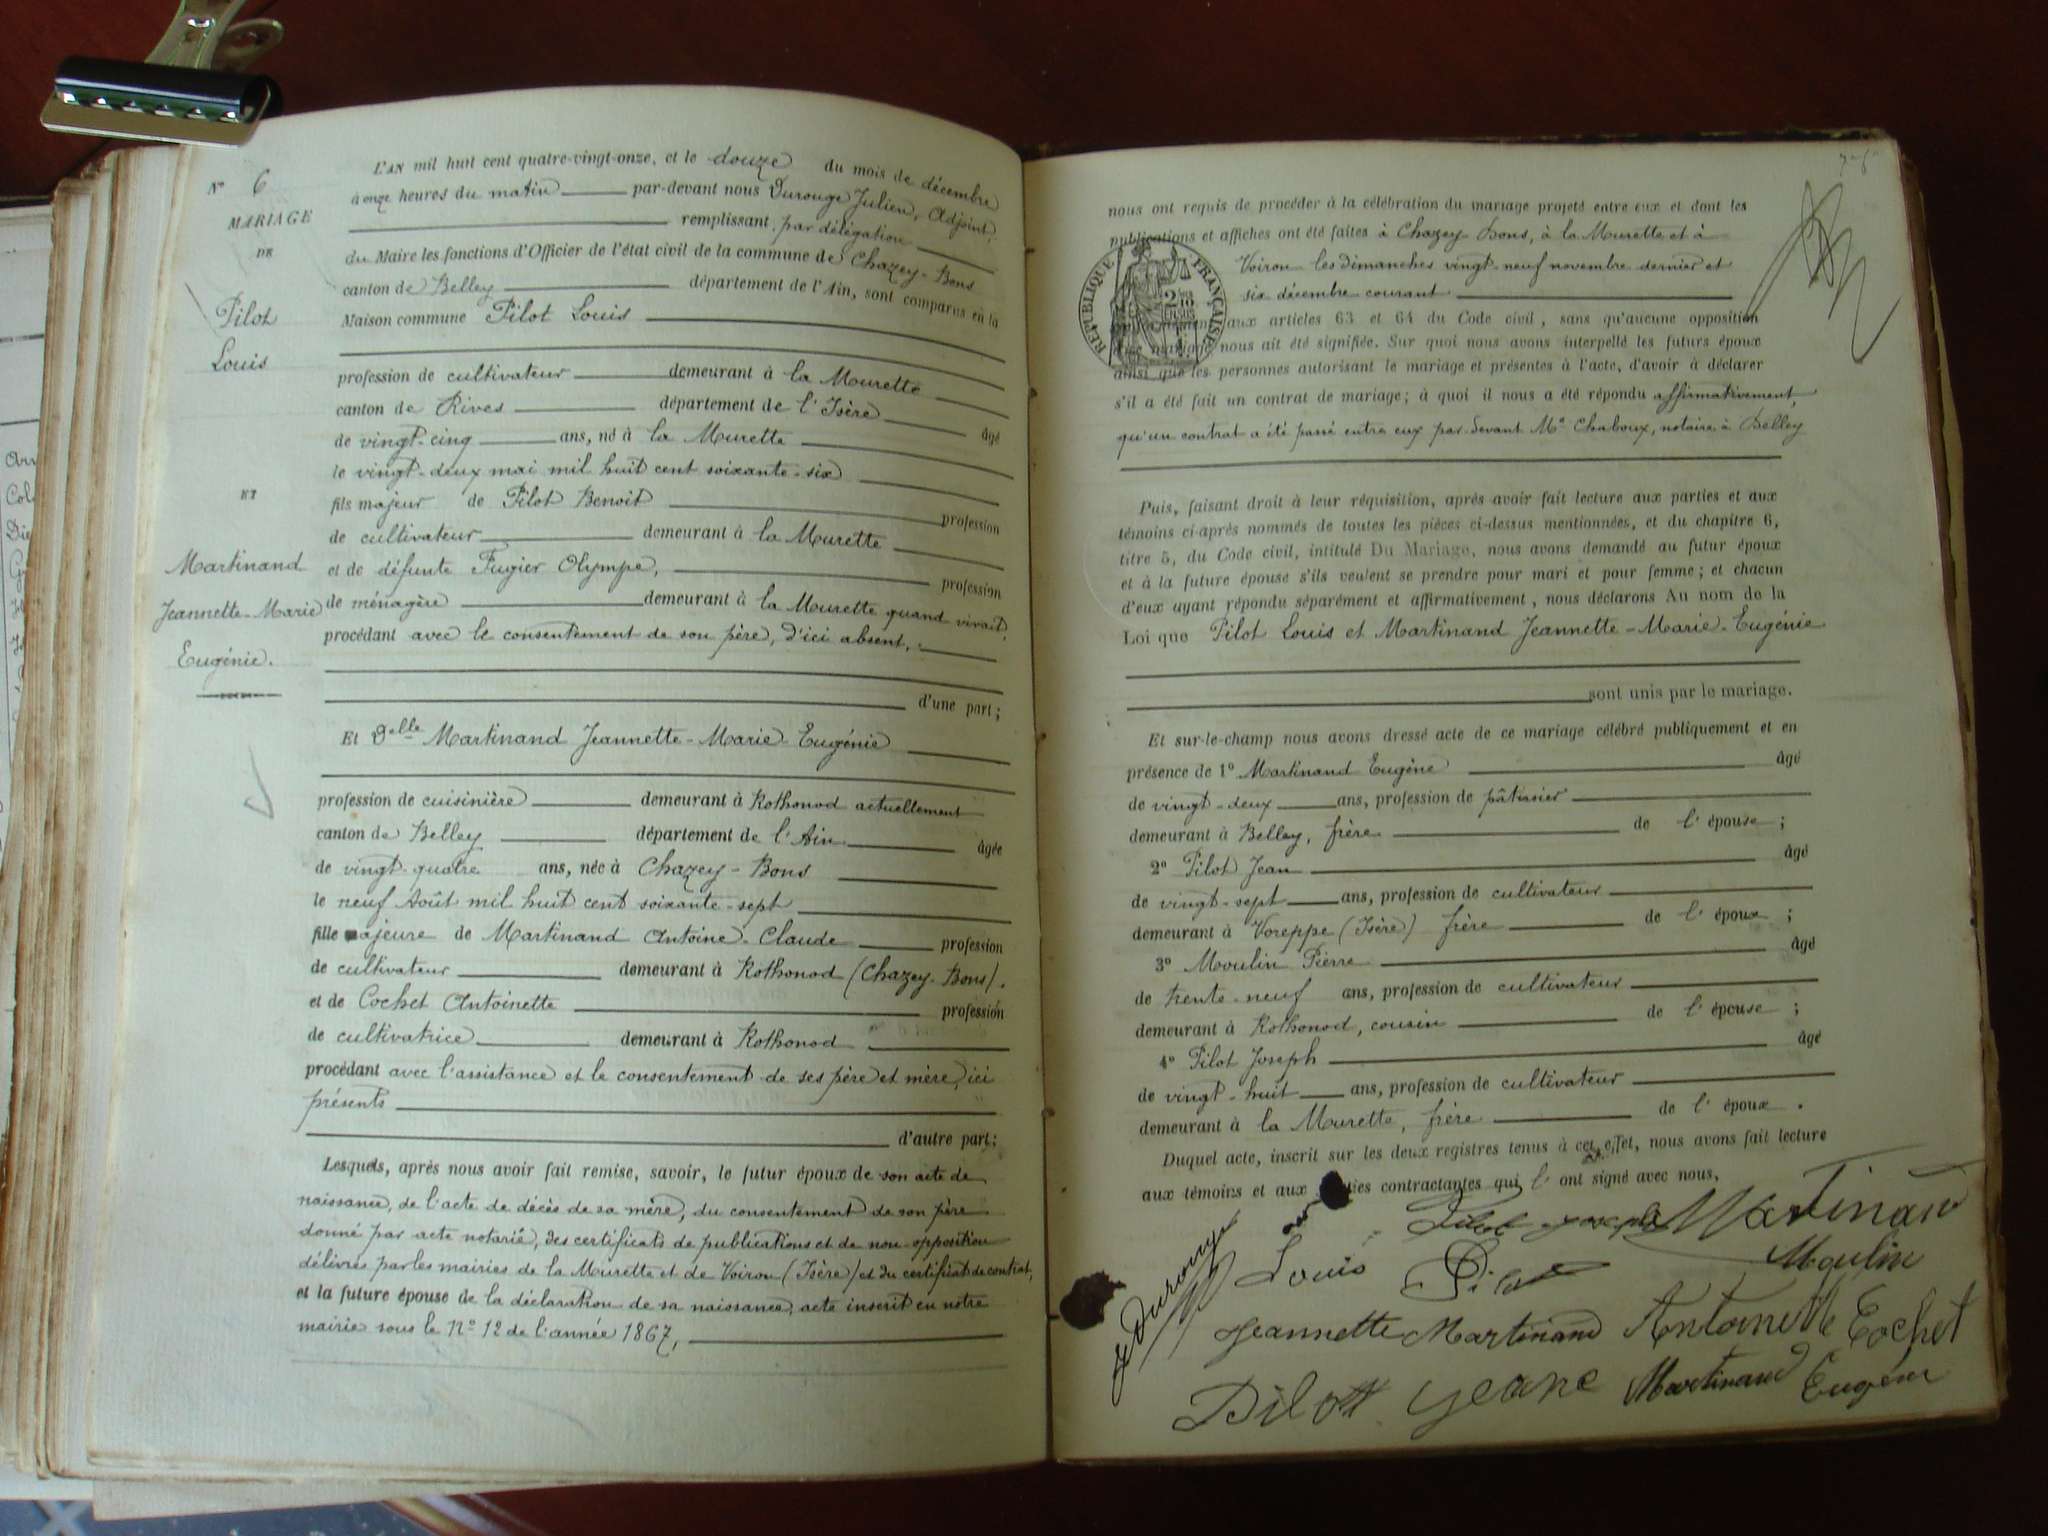 N° 6
MARIAGE
DE
Pilot
Louis
ET
Martinand
Jeannette-Marie
Eugénie.
L'AN mil huit cent quatre-vingt-onze, et le douze du mois de décembre
à onze heures du matin par-devant nous Durouge Julien, Adjoint,
remplissant par délégation
du Maire les fonctions d'Officier de l'état civil de la commune de Chazey-Bons
canton de Belley département de l'Ain, sont comparus en la
Maison commune Pilot Louis
profession de cultivateur demeurant à la Murette
canton de Rives département de l'Isère âgé
de vingt-cinq ans, né à la Murette
le vingt-deux mai mil huit cent soixante-six
fils majeur de Pilot Benoit profession
de cultivateur demeurant à la Murette
et de défunte Fugier Olympe, profession
de ménagère demeurant à la Murette quand vivait,
procédant avec le consentement de son père, d'ici absent,
d'une part;
Et Delle Martinand Jeannette-Marie-Eugénie
profession de cuisinière demeurant à Rothonod actuellement
canton de Belley département de l'Ain âgée
de vingt-quatre ans, née à Chazey-Bons
le neuf Août mil huit cent soixante-sept
fille majeure de Martinand Antoine-Claude profession
de cultivateur demeurant à Rothonod (Chazey-Bons),
et de Cochet Antoinette profession
de cultivatrice demeurant à Rothonod
procédant avec l'assistance et le consentement de ses père et mère, ici
présents
d'autre part;
Lesquels, après nous avoir fait remise, savoir, le futur époux de son acte de
naissance, de l'acte de décès de sa mère, du consentement de son père
donné par acte notarié, des certificats de publications et de non-opposition
délivrés par les mairies de la Murette et de Voiron (Isère) et du certificat de contrat,
et la future épouse de la déclaration de sa naissance, acte inscrit en notre
mairie sous le N° 12 de l'année 1867,
nous ont requis de procéder à la célébration du mariage projeté entre eux et dont les
publications et affiches ont été faites à Chazey-Bons, à la Murette et à
Voiron les Dimanches vingt-neuf novembre dernier et
six décembre courant
RÉPUBLIQUE FRANÇAISE
aux articles 63 et 64 du Code civil, sans qu'aucune opposition
nous ait été signifiée. Sur quoi nous avons interpellé les futurs époux
ainsi que les personnes autorisant le mariage et présentes à l'acte, d'avoir à déclarer
s'il a été fait un contrat de mariage; à quoi il nous a été répondu affirmativement,
qu'un contrat a été passé entre eux par-devant Me Chaboux, notaire à Belley
Puis, faisant droit à leur réquisition, après avoir fait lecture aux parties et aux
témoins ci-après nommés de toutes les pièces ci-dessus mentionnées, et du chapitre 6,
titre 5, du Code civil, intitulé Du Mariage, nous avons demandé au futur époux
et à la future épouse s'ils veulent se prendre pour mari et pour femme; et chacun
d'eux ayant répondu séparément et affirmativement, nous déclarons Au nom de la
Loi que Pilot Louis et Martinand Jeannette-Marie-Eugénie
sont unis par le mariage.
Et sur-le-champ nous avons dressé acte de ce mariage célébré publiquement et en
présence de 1° Martinand Eugène âgé
de vingt-deux ans, profession de pâtissier
demeurant à Belley, frère de l'épouse;
2° Pilot Jean âgé
de vingt-sept ans, profession de cultivateur
demeurant à Voreppe (Isère) frère de l'époux;
3° Moulin Pierre âgé
de trente-neuf ans, profession de cultivateur
demeurant à Rothonod, cousin de l'épouse;
4° Pilot Joseph âgé
de vingt-huit ans, profession de cultivateur
demeurant à la Murette, frère de l'époux.
Duquel acte, inscrit sur les deux registres tenus à cet effet, nous avons fait lecture
aux témoins et aux parties contractantes qui l'ont signé avec nous,
Pilot Joseph Martinand
Louis Pilot Moulin
J Durouge
Jeannette Martinand Antoinette Cochet
Pilott Jeane Martinand Eugène